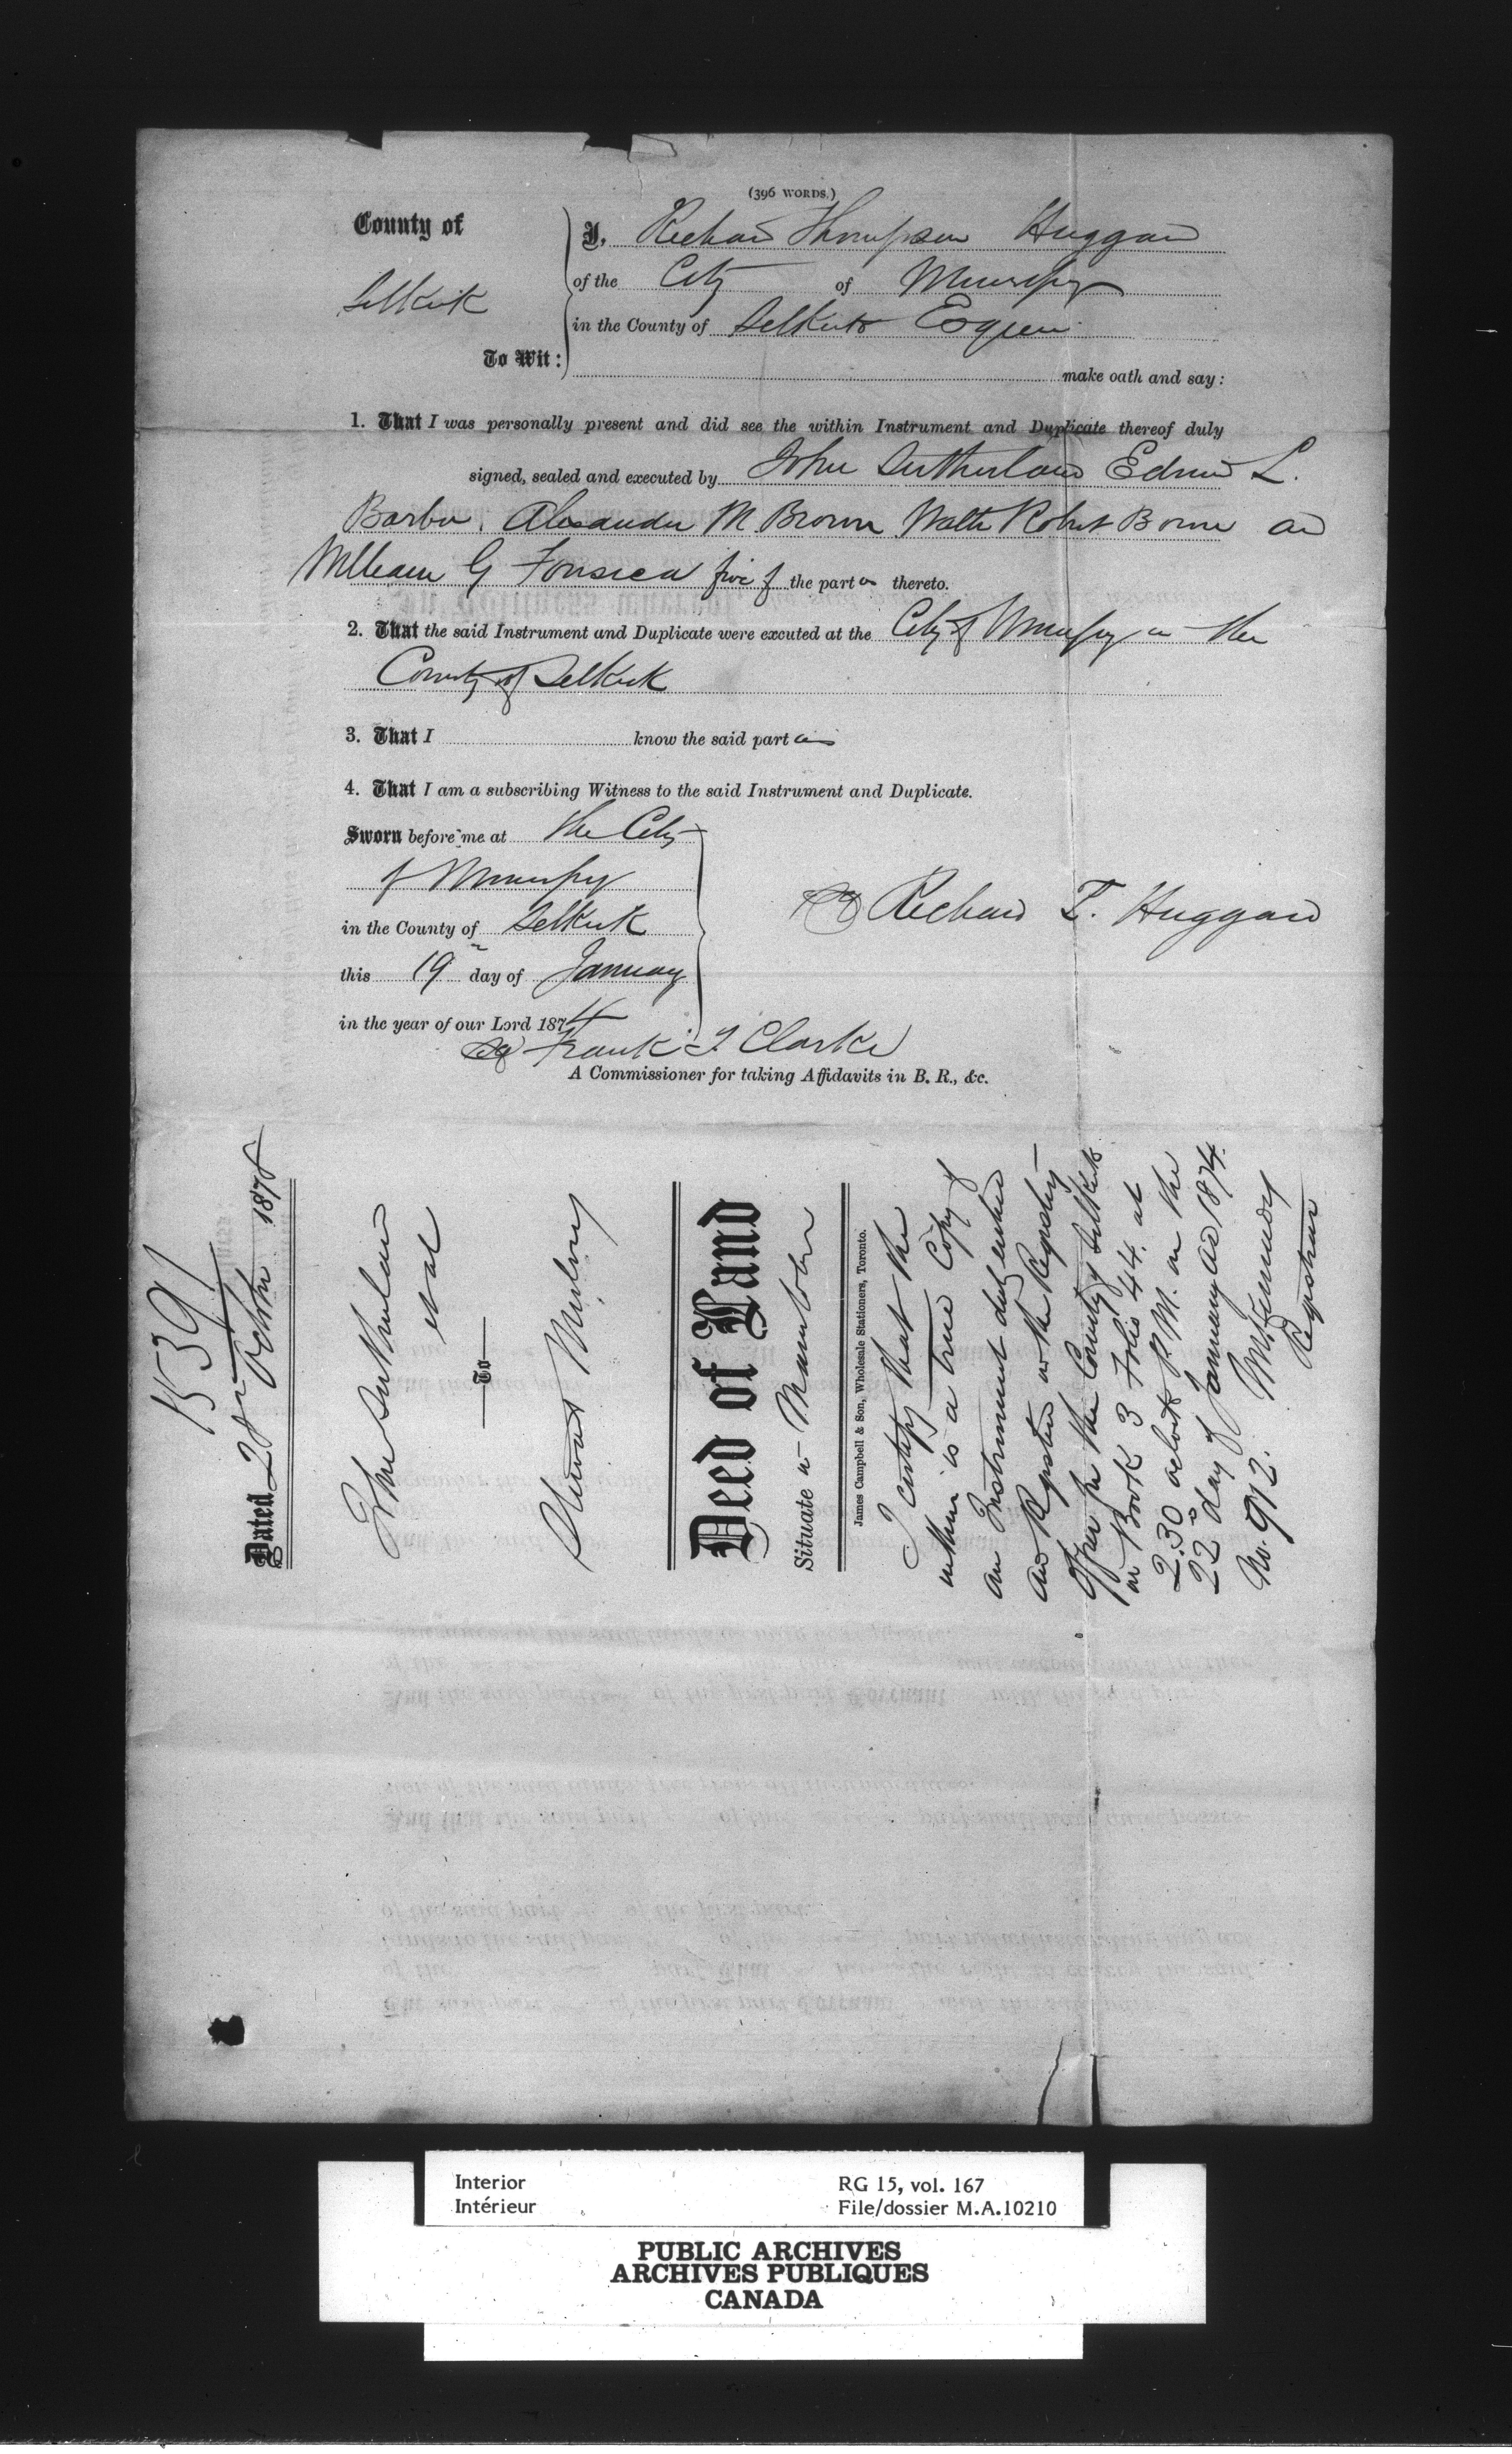 (396 WORDS.)
County of
Selkirk
To Wit:
I, Richard Thompson Huggard
of the City of Winnipeg
in the County of Selkirk Esquire
make oath and say:
1. That I was personally present and did see the within Instrument and Duplicate thereof duly
signed, sealed and executed by John Sutherland Edwin L.
Barber, Alexander M. Brown Walter Robert Bown and
William G Fonseca five of the parties thereto.
2. That the said Instrument and Duplicate were excuted at the City of Winnipeg in the
County of Selkirk
3. That I know the said parties
4. That I am a subscribing Witness to the said Instrument and Duplicate.
Sworn before me at the City
of Winnipeg
in the County of Selkirk
this 19th day of January
in the year of our Lord 1874
Richard T. Huggard
Frank I. Clarke
A Commissioner for taking Affidavits in B. R., &c.
15391
Dated 28th October 187
John Sutherland
et al
To
Stewart Mulvey
Deed of Land
Situate in Manitoba
James Campbell & Son, Wholesale Stationers, Toronto.
I certify that the
within is a true Copy of
an Instrument duly entered
and Registered in the Registry
Office for the County of Selkirk
in Book 3 Folio 44. at
2.30 oclock P.M. on the
22nd day of January AD 1874.
No. 912.
Registrar
Interior
Intérieur
RG 15, vol. 167
File/dossier M.A.10210
PUBLIC ARCHIVES
ARCHIVES PUBLIQUES
CANADA